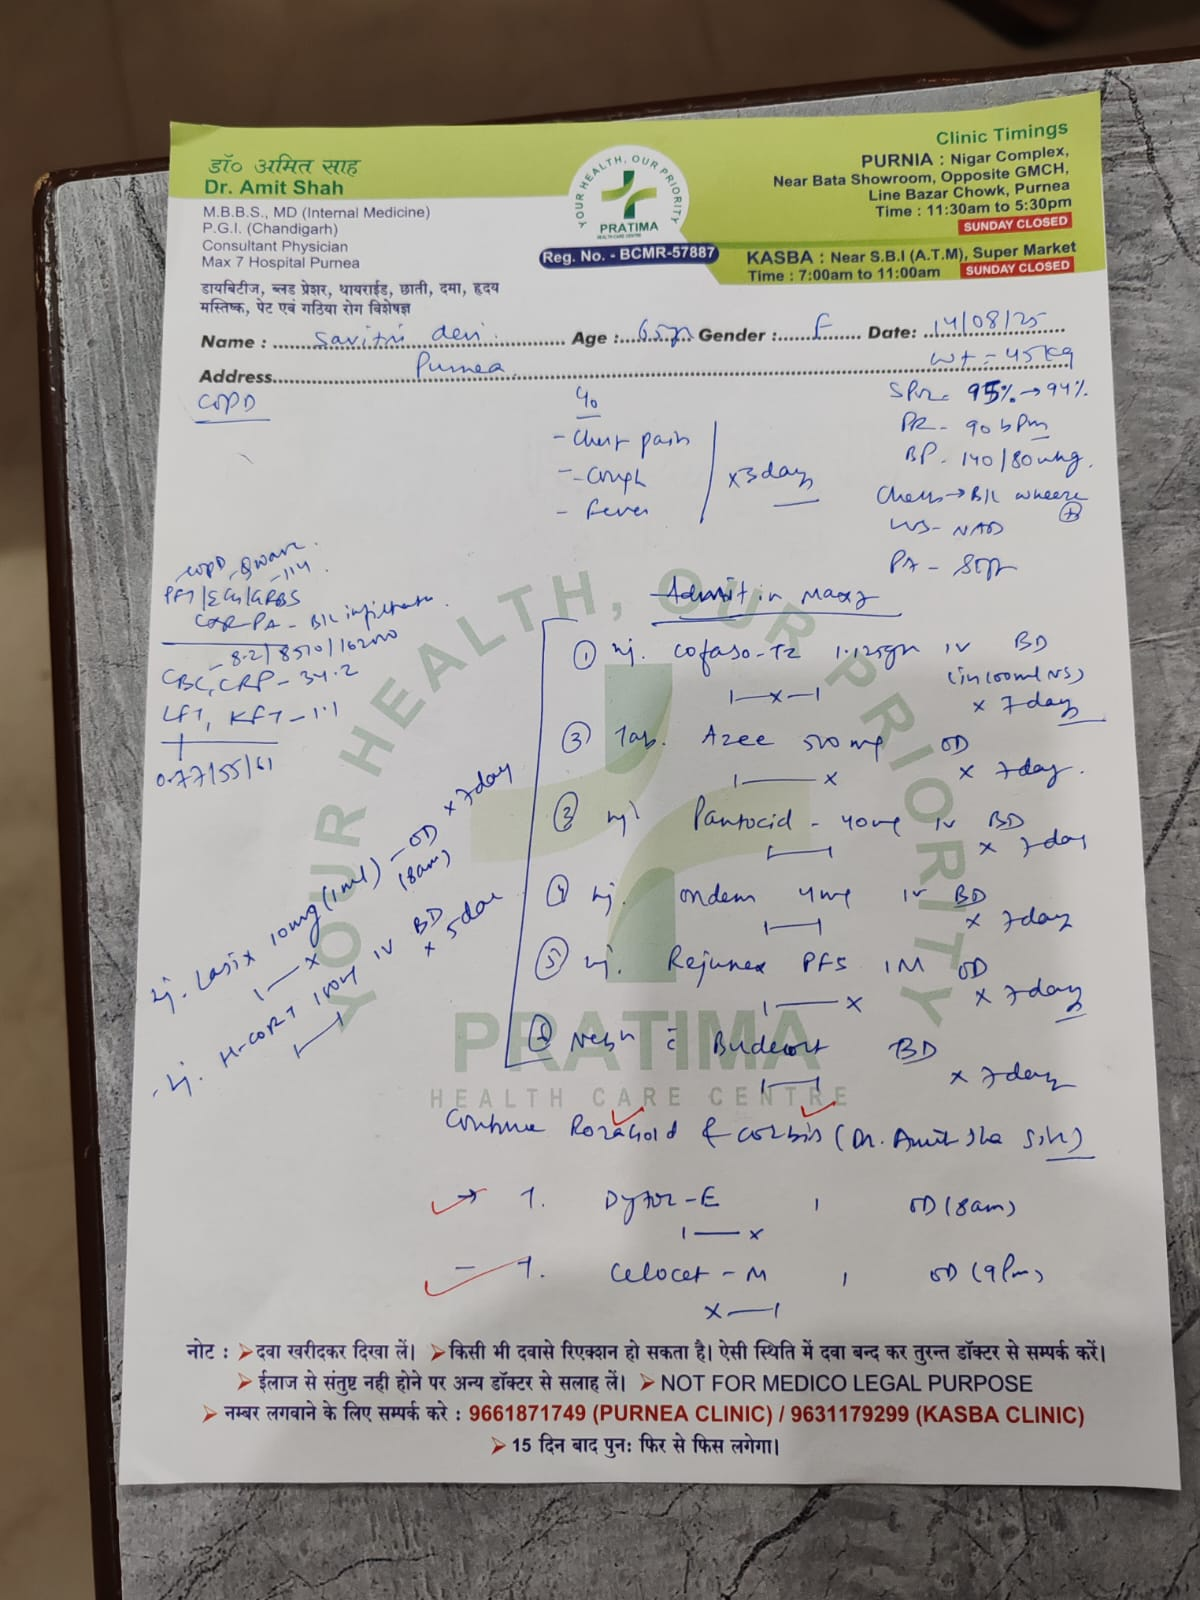 डॉ० अमित साह
Dr. Amit Shah
M.B.B.S., MD (Internal Medicine)
P.G.I. (Chandigarh)
Consultant Physician
Max 7 Hospital Purnea
डायबिटीज, ब्लड प्रेशर, थायराईड, छाती, दमा, हृदय
मस्तिष्क, पेट एवं गठिया रोग विशेषज्ञ
YOUR HEALTH, OUR PRIORITY
PRATIMA
HEALTH CARE CENTRE
Reg. No. - BCMR-57887
Clinic Timings
PURNIA : Nigar Complex,
Near Bata Showroom, Opposite GMCH,
Line Bazar Chowk, Purnea
Time : 11:30am to 5:30pm
SUNDAY CLOSED
KASBA : Near S.B.I (A.T.M), Super Market
Time : 7:00am to 11:00am SUNDAY CLOSED
Name : Savitri devi Age : 65yr Gender : F Date: 14/08/25
Address Purnea wt = 45kg
COPD
c/o
- Chest pain
- Cough
- Fever
x 3 day
SPO2 - 95% → 94%
PR - 90 bpm
BP - 140/80 mmhg.
Chest → B/L wheeze +
NAD
PA - Soft
COPD
PFT/ECG/GRBS - 114
CXR PA - B/L infiltrate
- 8.2/8510/162000
CBC, CRP - 34.2
LFT, KFT - 1.1
0.77/55/61
Admit in Max7
① inj. Cofaso-TZ 1.125gm IV BD
(in 100ml NS)
x 7 day
③ Tab. Azee 500mg OD
x 7 day.
② inj Pantocid - 40mg IV BD
x 7 day
④ inj. Ondem 4mg IV BD
x 7 day
⑤ inj. Rejunex PFS IM OD
x 7 day
Nebn c Budecort BD
x 7 day
inj. Lasix 10mg (1ml) - OD x 7 day
(8am)
- inj. H-CORT 100mg IV BD
x 5 day
Continue Rozagold & Corbis (Dr. Amit Jha Sir)
→ T. Dytor-E 1 OD (8am)
- T. Celocet-M 1 OD (9pm)
YOUR HEALTH, OUR PRIORITY
PRATIMA
HEALTH CARE CENTRE
नोट : दवा खरीदकर दिखा लें। किसी भी दवासे रिएक्शन हो सकता है। ऐसी स्थिति में दवा बन्द कर तुरन्त डॉक्टर से सम्पर्क करें।
ईलाज से संतुष्ट नही होने पर अन्य डॉक्टर से सलाह लें। NOT FOR MEDICO LEGAL PURPOSE
नम्बर लगवाने के लिए सम्पर्क करे : 9661871749 (PURNEA CLINIC) / 9631179299 (KASBA CLINIC)
15 दिन बाद पुन: फिर से फिस लगेगा।